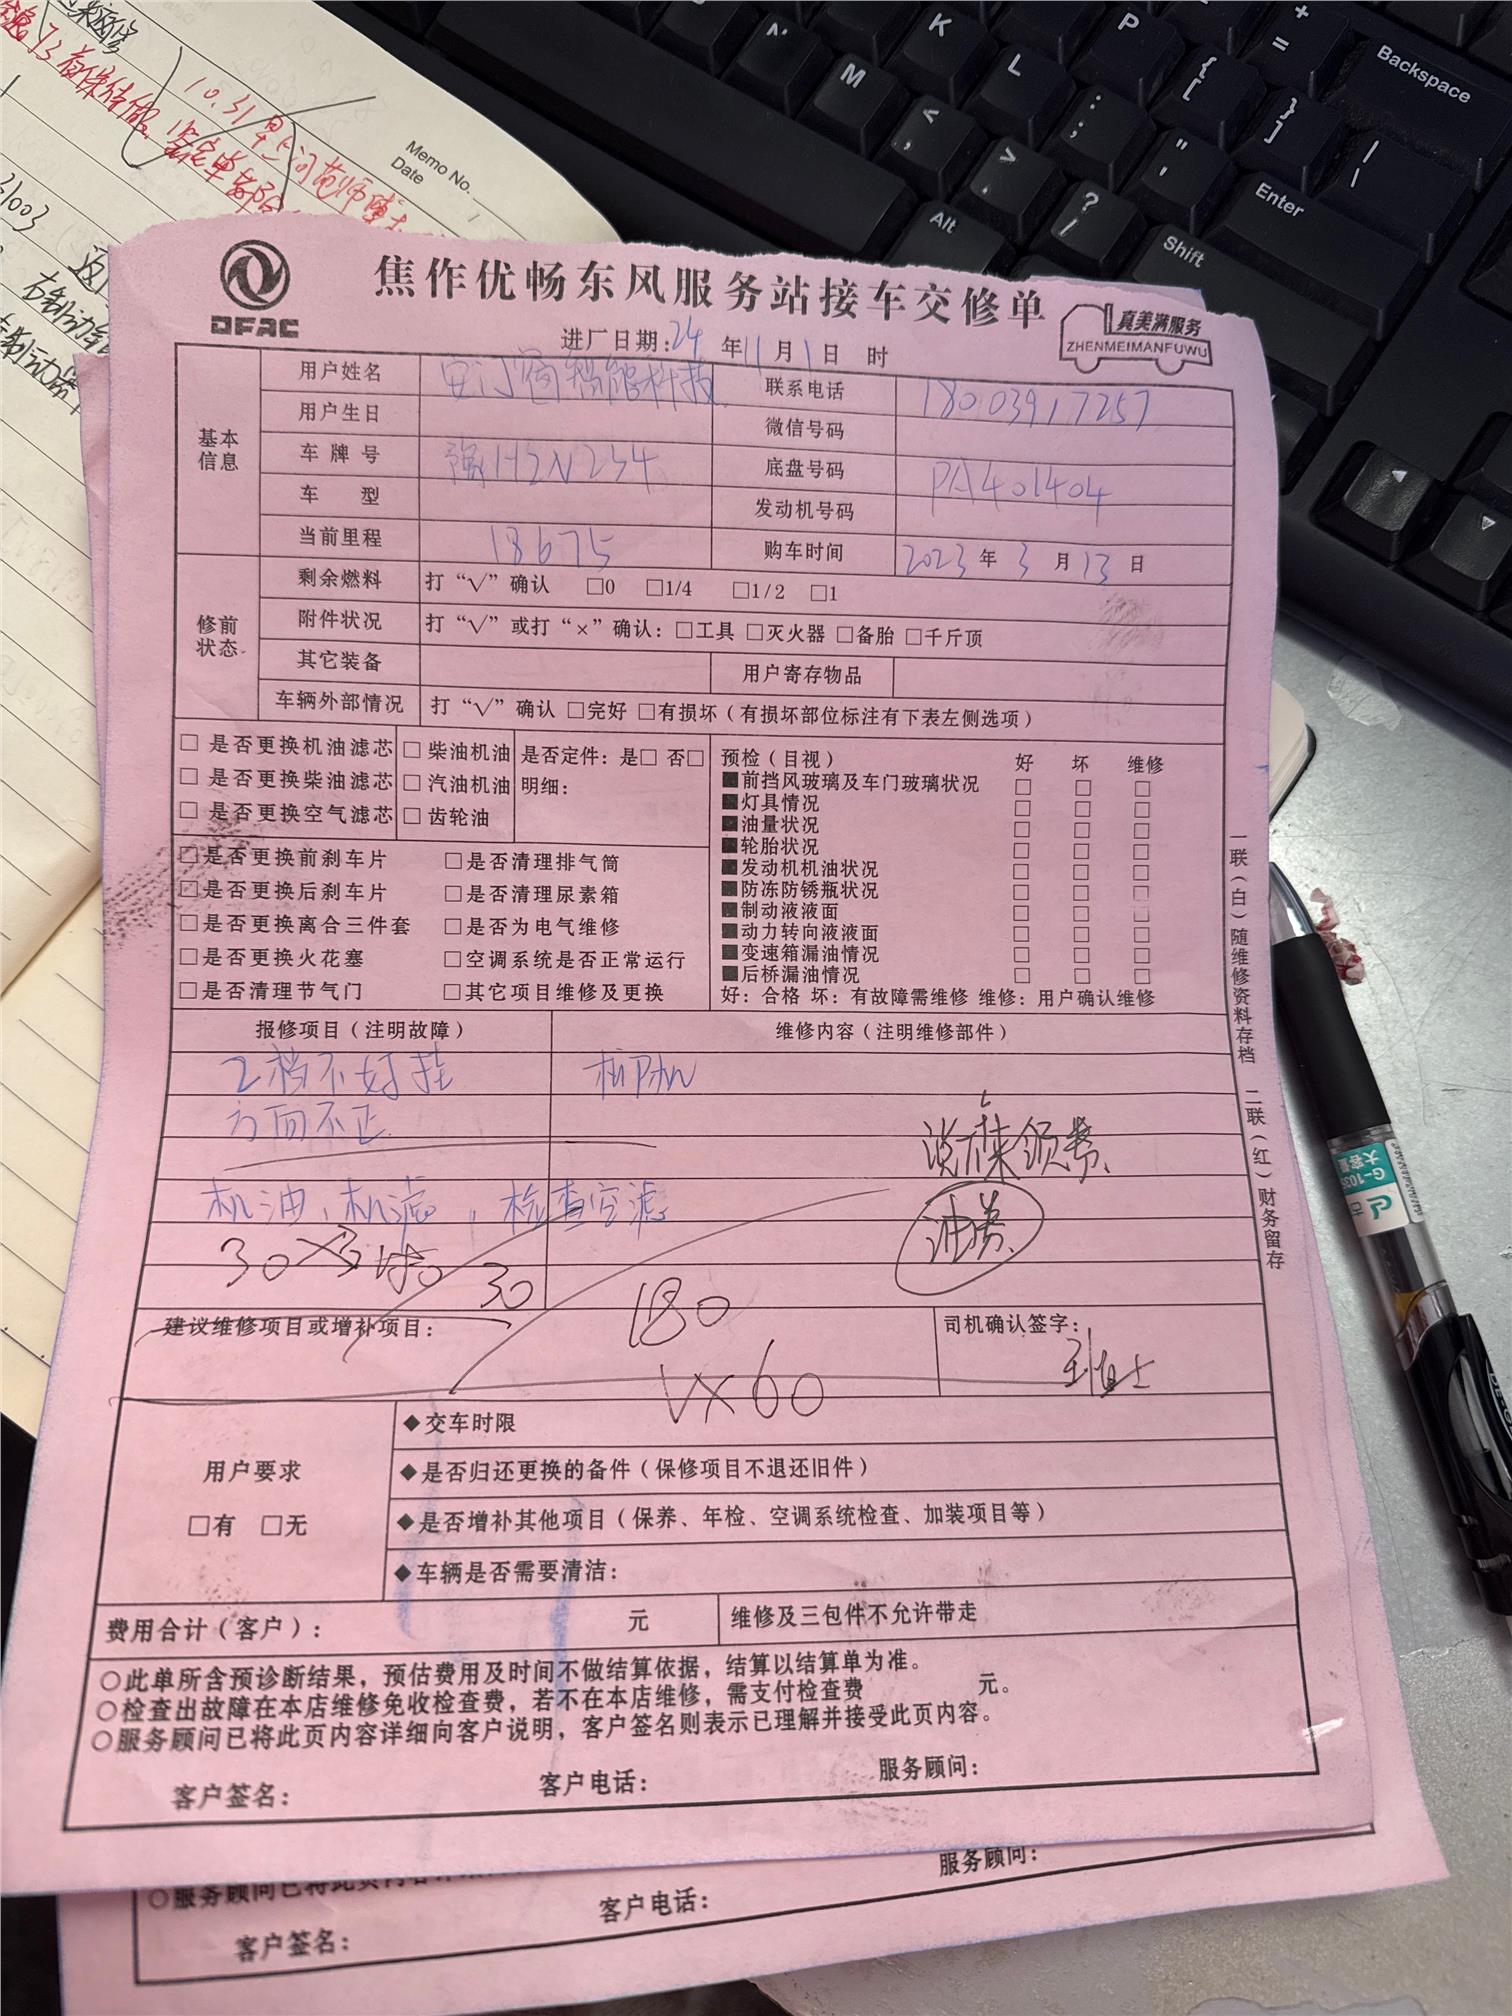 10.31
Memo No.
Date
K
L
P
M
Backspace
Enter
Alt
Shift
DFAC
焦作优畅东风服务站接车交修单
真美满服务
ZHENMEIMANFUWU
进厂日期:24年11月1日 时
基本信息
用户姓名
联系电话 18003917257
用户生日 微信号码
车牌号 豫H2N254 底盘号码 PA401404
车 型 发动机号码
当前里程 18675 购车时间 2023年3月13日
修前状态
剩余燃料 打“√”确认 □0 □1/4 □1/2 □1
附件状况 打“√”或打“×”确认:□工具 □灭火器 □备胎 □千斤顶
其它装备 用户寄存物品
车辆外部情况 打“√”确认 □完好 □有损坏(有损坏部位标注有下表左侧选项)
□ 是否更换机油滤芯 □ 柴油机油 是否定件:是□ 否□
□ 是否更换柴油滤芯 □ 汽油机油 明细:
□ 是否更换空气滤芯 □ 齿轮油
□是否更换前刹车片 □是否清理排气筒
□是否更换后刹车片 □是否清理尿素箱
□是否更换离合三件套 □是否为电气维修
□是否更换火花塞 □空调系统是否正常运行
□是否清理节气门 □其它项目维修及更换
预检(目视) 好 坏 维修
■前挡风玻璃及车门玻璃状况 □ □ □
■灯具情况 □ □ □
■油量状况 □ □ □
■轮胎状况 □ □ □
■发动机机油状况 □ □ □
■防冻防锈瓶状况 □ □ □
■制动液液面 □ □ □
■动力转向液液面 □ □ □
■变速箱漏油情况 □ □ □
■后桥漏油情况 □ □ □
好:合格 坏:有故障需维修 维修:用户确认维修
报修项目(注明故障) 维修内容(注明维修部件)
2档不好挂
方向不正
机油,机滤,检查空滤
油券
30
180
建议维修项目或增补项目:
司机确认签字:
VX60
用户要求
□有 □无
◆交车时限
◆是否归还更换的备件(保修项目不退还旧件)
◆是否增补其他项目(保养、年检、空调系统检查、加装项目等)
◆车辆是否需要清洁:
费用合计(客户): 元 维修及三包件不允许带走
○此单所含预诊断结果,预估费用及时间不做结算依据,结算以结算单为准。
○检查出故障在本店维修免收检查费,若不在本店维修,需支付检查费 元。
○服务顾问已将此页内容详细向客户说明,客户签名则表示已理解并接受此页内容。
客户签名: 客户电话: 服务顾问:
一联(白)随维修资料存档 二联(红)财务留存
服务顾问:
客户电话:
客户签名: